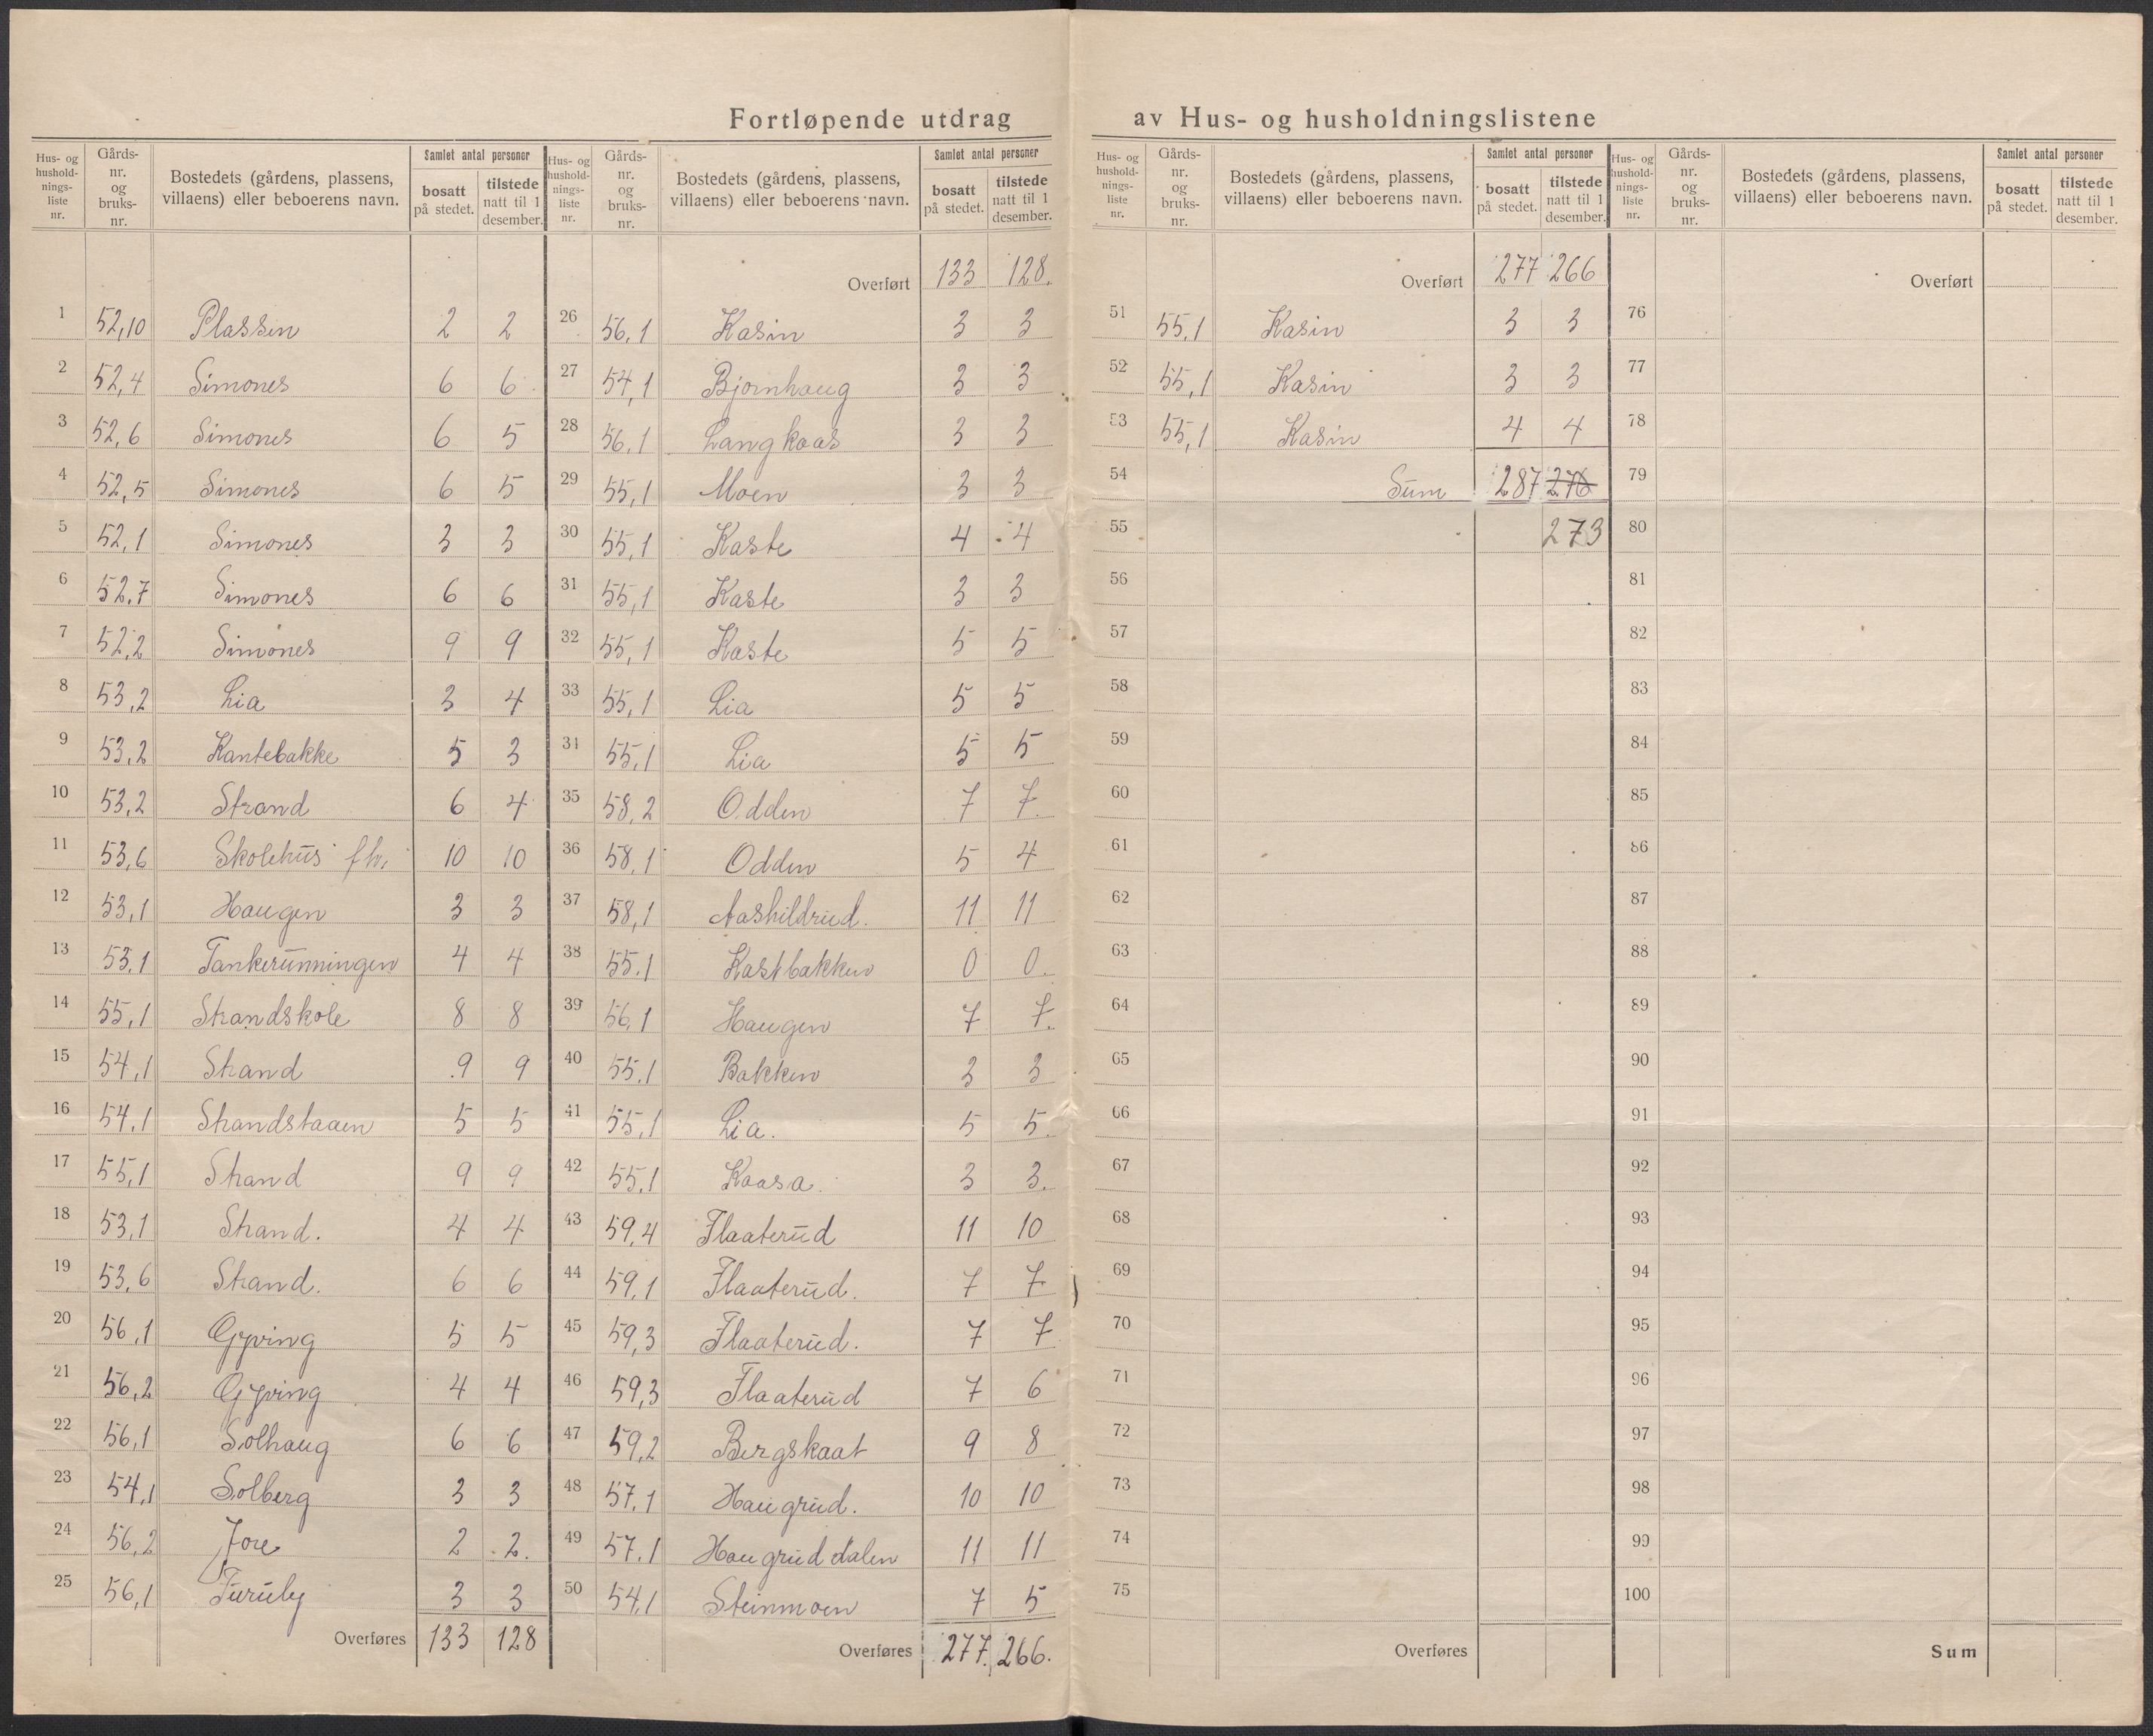 Fortløpende utdrag av Hus- og husholdningslistene
Hus- og hushold-nings-liste nr. | Gårds-nr. og bruks-nr. | Bostedets (gårdens, plassens, villaens) eller beboerens navn. | Samlet antal personer | bosatt på stedet. | tilstede natt til 1 desember.
1 52,10 Plassen 2 2
2 52,4 Simones 6 6
3 52,6 Simones 6 5
4 52,5 Simones 6 5
5 52,1 Simones 3 3
6 52,7 Simones 6 6
7 52,2 Simones 9 9
8 53,2 Lia 3 4
9 53,2 Kantebakke 5 3
10 53,2 Strand 6 4
11 53,6 Skolehus fh. 10 10
12 53,1 Haugen 3 3
13 53,1 Tankerunningen 4 4
14 55,1 Strandskole 8 8
15 54,1 Strand 9 9
16 54,1 Strandstaaen 5 5
17 55,1 Strand 9 9
18 53,1 Strand. 4 4
19 53,6 Strand. 6 6
20 56,1 Gyving 5 5
21 56,2 Gyving 4 4
22 56,1 Solhaug 6 6
23 54,1 Solberg 3 3
24 56,2 Jore 2 2.
25 56,1 Furuly 3 3
Overføres 133 128
Hus- og hushold-nings-liste nr. | Gårds-nr. og bruks-nr. | Bostedets (gårdens, plassens, villaens) eller beboerens navn. | Samlet antal personer | bosatt på stedet. | tilstede natt til 1 desember.
Overført 133 128.
26 56,1 Kasin 3 3
27 54,1 Bjørnhaug 3 3
28 56,1 Langkaas 3 3
29 55,1 Moen 3 3
30 55,1 Kaste 4 4
31 55,1 Kaste 3 3
32 55,1 Kaste 5 5
33 55,1 Lia 5 5
34 55,1 Lia 5 5
35 58,2 Odden 7 7.
36 58,1 Odden 5 4
37 58,1 Aashildrud. 11 11
38 55,1 Kastbakken 0 0.
39 56,1 Haugen 7 7.
40 55,1 Bakken 3 3
41 55,1 Lia. 5 5.
42 55,1 Kaasa. 3 3.
43 59,4 Flaaterud 11 10
44 59,1 Flaaterud. 7 7
45 59,3 Flaaterud. 7 7
46 59,3 Flaaterud 7 6
47 59,2 Bergskaat 9 8
48 57,1 Haugrud. 10 10
49 57,1 Haugruddalen 11 11
50 54,1 Steinmoen 7 5
Overføres 277. 266.
Hus- og hushold-nings-liste nr. | Gårds-nr. og bruks-nr. | Bostedets (gårdens, plassens, villaens) eller beboerens navn. | Samlet antal personer | bosatt på stedet. | tilstede natt til 1 desember.
Overført 277 266
51 55,1 Kasin 3 3
52 55,1 Kasin 3 3
53 55,1 Kasin 4 4
54 Sum 287 276
55 273
56
57
58
59
60
61
62
63
64
65
66
67
68
69
70
71
72
73
74
75
Overføres
Hus- og hushold-nings-liste nr. | Gårds-nr. og bruks-nr. | Bostedets (gårdens, plassens, villaens) eller beboerens navn. | Samlet antal personer | bosatt på stedet. | tilstede natt til 1 desember.
Overført
76
77
78
79
80
81
82
83
84
85
86
87
88
89
90
91
92
93
94
95
96
97
98
99
100
Sum